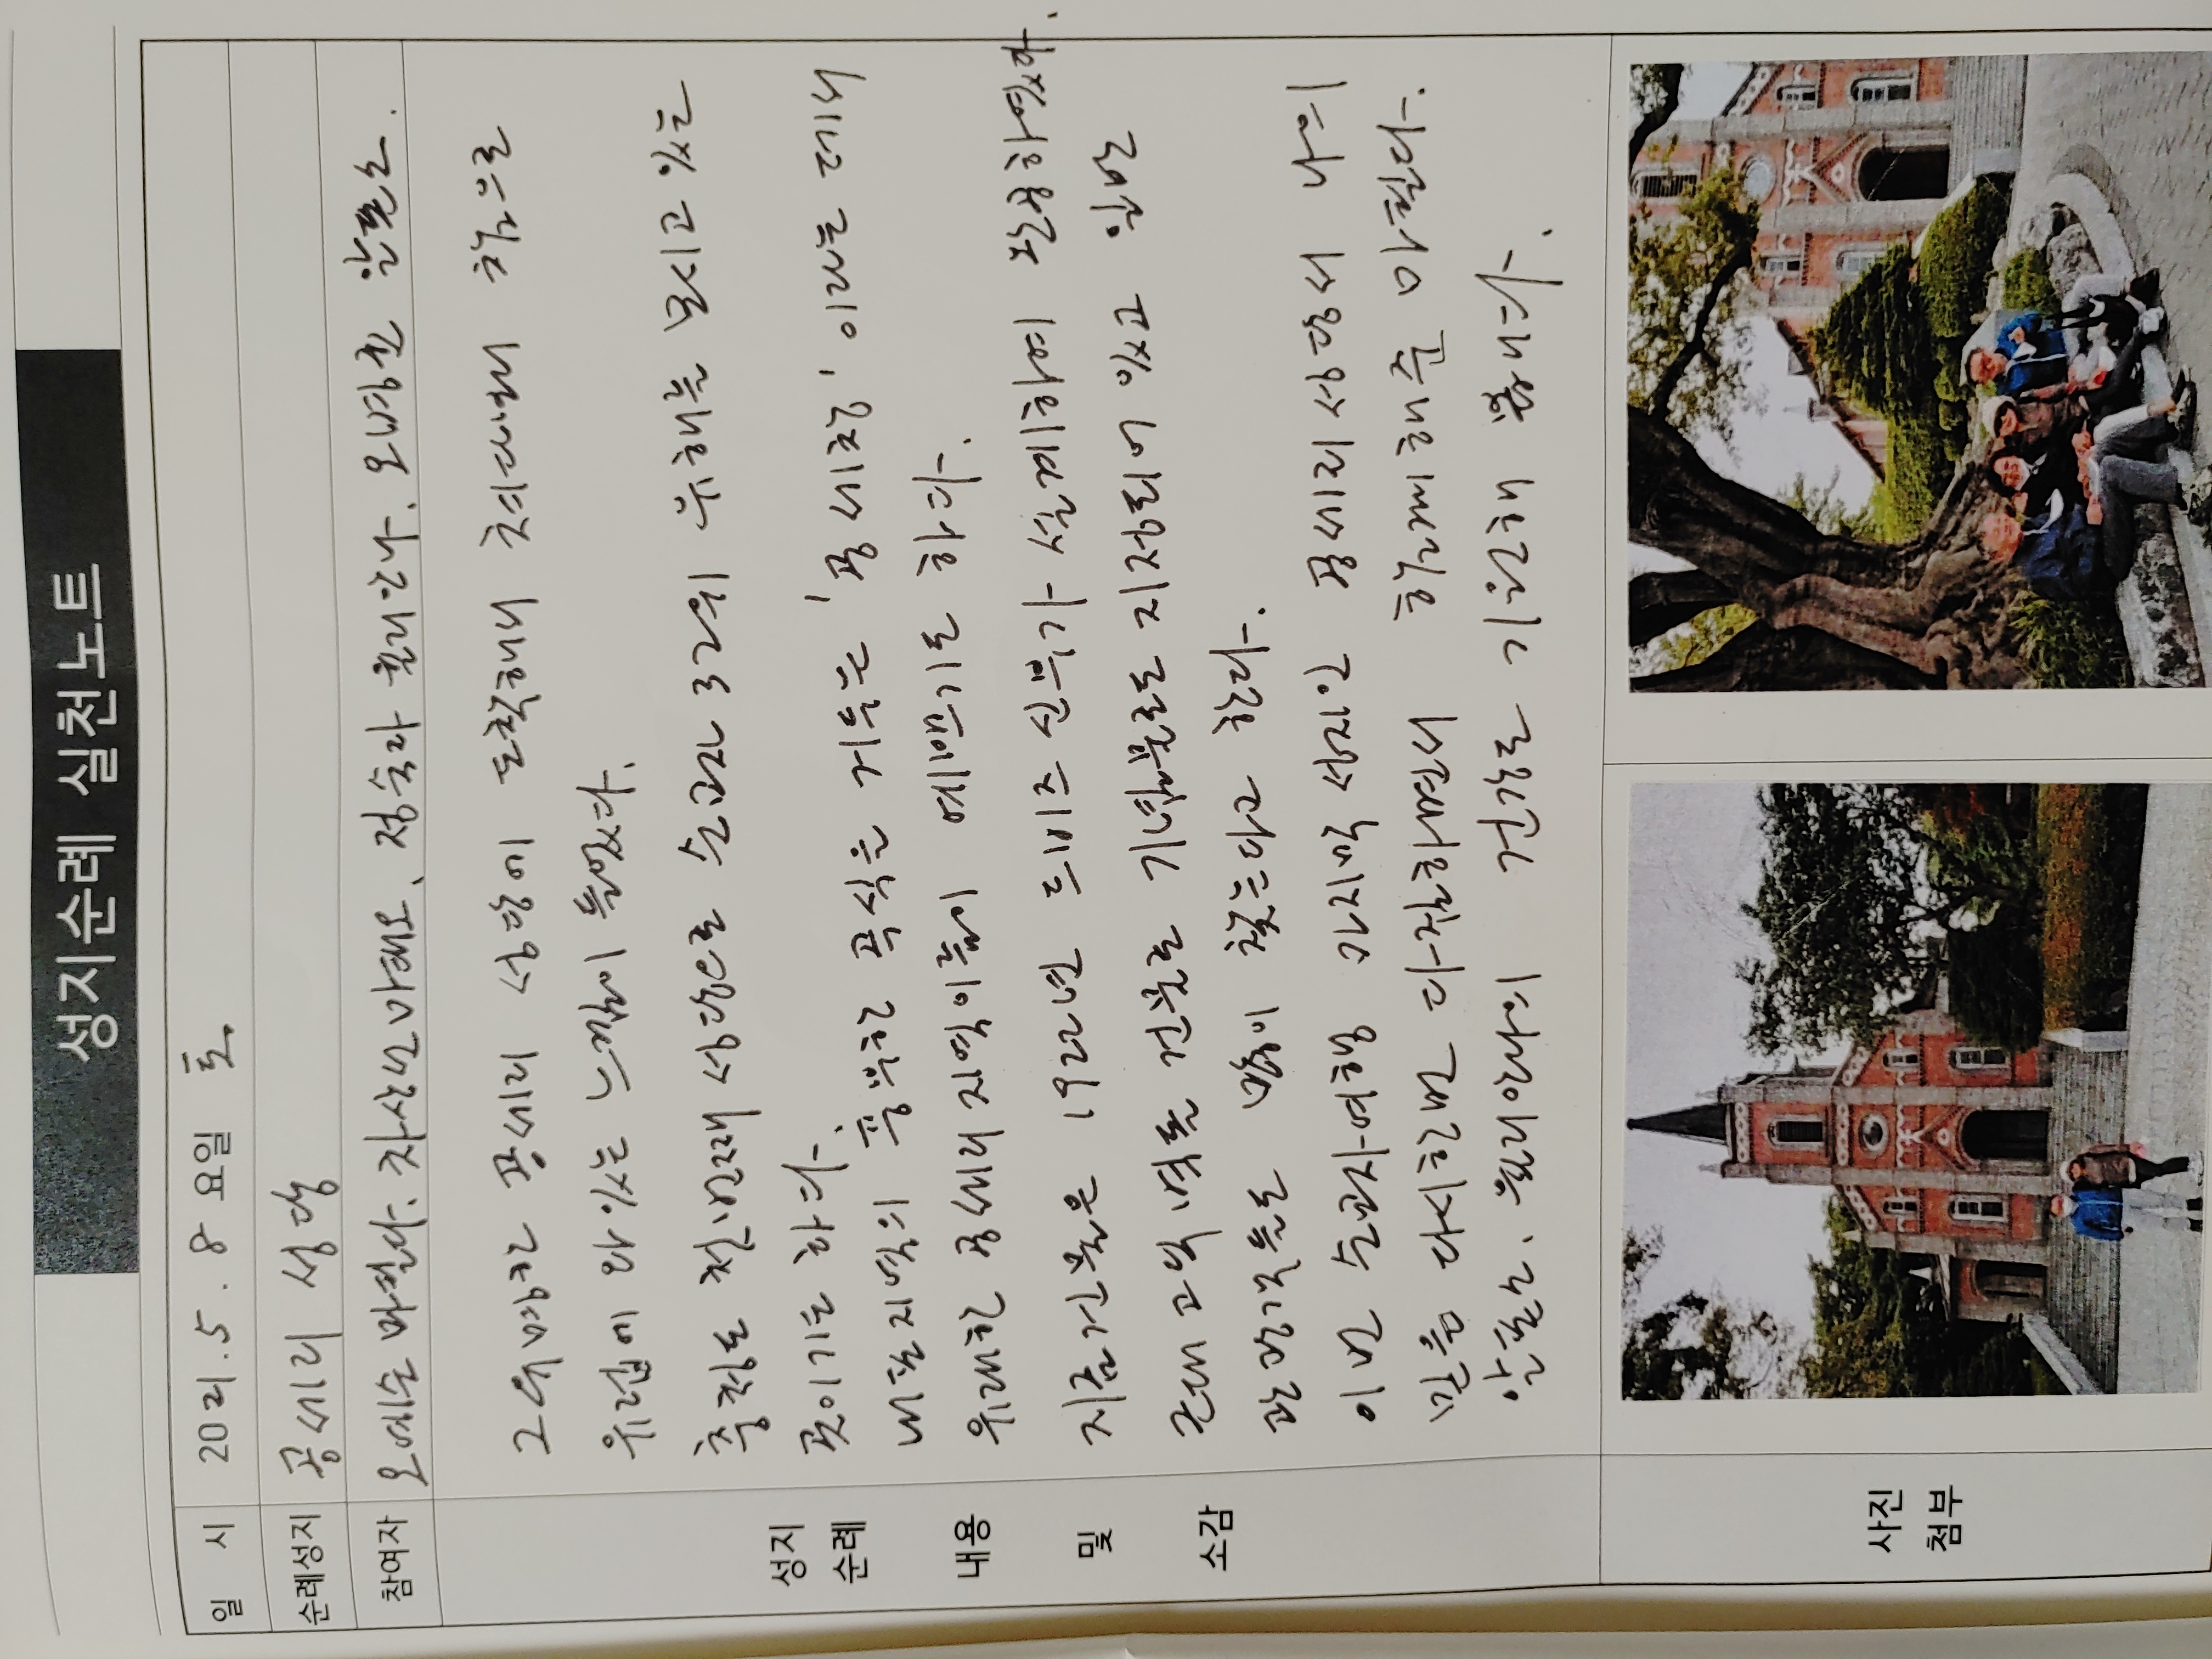 성지순례 실천노트
일 시 2021. 5. 8 요일 토
순례성지 공세리 성당
참여자 오예순 마필다. 차상선 마태오, 정숙라 율리안나. 오병호 알폰소.
그유명한 공세리 성당에 도착해서 쳐다보니 참으로
유럽에 와 있는 느낌이 들었다.
충청도 첫번째 성당으로 순교자 32위 유해를 모시고 있는
곳이기도 하다.
내포지역의 풍부한 곡식을 거두는 '공세창' 이라는 데서
유래한 공세리 지역이름이 예쁘기도 하다.
지금건물은 1922년 드비즈 신부가 설계하여 완공하였다.
근대 고딕 벽돌 건물로 기념물로도 지정되어 있고 일반
관광객들도 많이 찾는다고 한다.
이번 순교자여행 마지막 성지인 공세리성당서 나의
믿음 다시한번 다짐하면서 함께해준 마필다.
알폰소. 율리안나의 건강도 기원해 봅니다.
성지
순례
내용
및
소감
사진
첨부